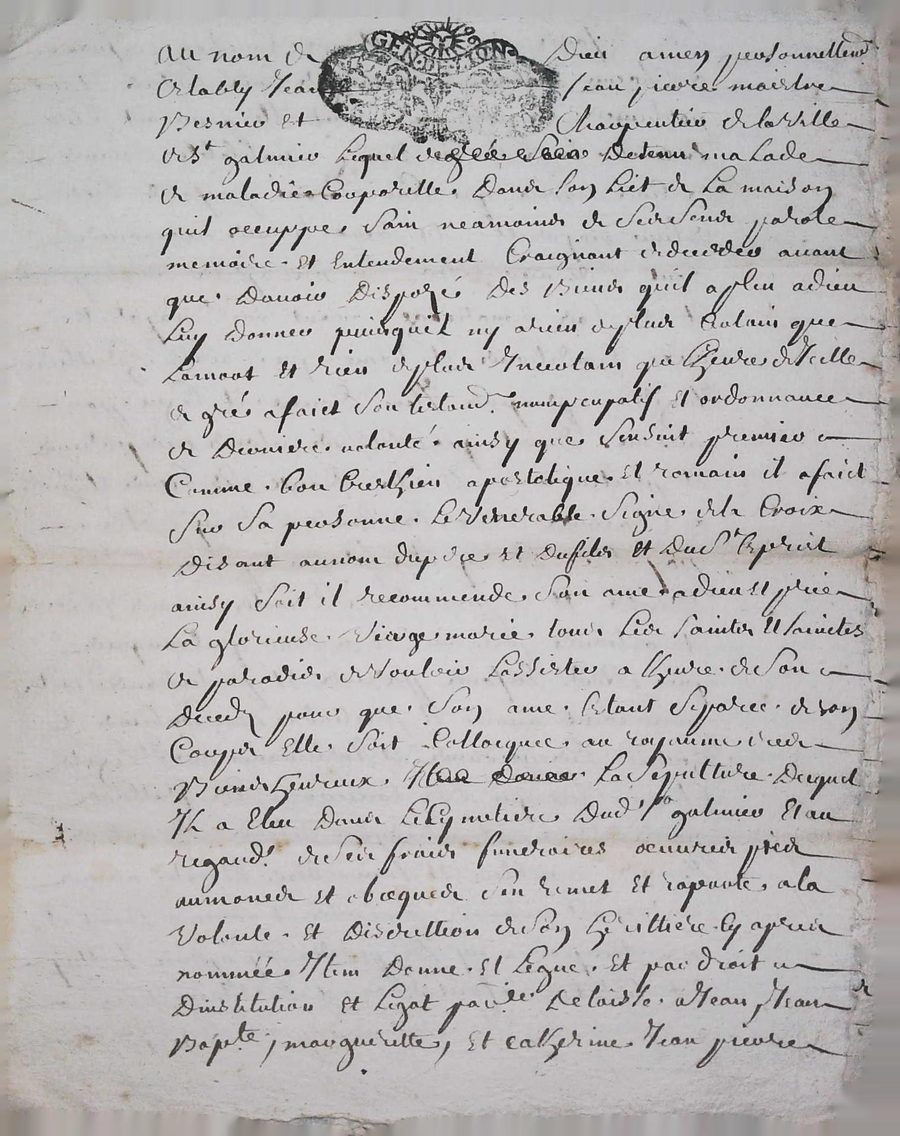 GEN·DE·LION
Au nom de Dieu amen personnellemt
Estably Jean Jean pierre maistre
Besnier et Charpentier de la Ville
de St galmier lequel de gré Detenu malade
de maladie Corporelle Dans Son Lict de La maison
quil occuppe Sain neamoins de Ses Sens parole
memoire et Entendement Craignant de deceder auant
que Dauoir Disposé Des Biens quil a pleu a dieu
Luy Donner puisquil ny a rien de plus Certain que
Lamort et rien de plus Incertain que lheure dicelle
de gré a faict Son testamt nuncupatif et ordonnance
de Derniere volonté ainsy que Sensuit premier
Comme bon Crethien apostolique et romain il a faict
Sur Sa personne Le Venerable Signe de la Croix
Disant au nom du pere et Du fils et Du St Esprit
ainsy Soit il recommende Son ame a dieu et prie
La glorieuse Vierge marie tous Les Saints et Sainctes
de paradis de Vouloir Lassister a lheure de Son
Deceds pour que Son ame Estant Separee de son
Corps Elle Soit Collocquee au royaume des
Biensheureux La Sepulture Duquel
Il a Eleu Dans Le Cymetiere Dud St galmier Et au
regard de Ses frais funeraires oeuures pies
aumones et obseques Sen remet et raporte a la
Volonte et Discrettion de Son heritiere Cy apres
nommée Item Donne et Legue et par droit
Dinstitution et Legat par Delaisse a Jean, Jean
Bapte, margueritte, et Catherine Jean pierre